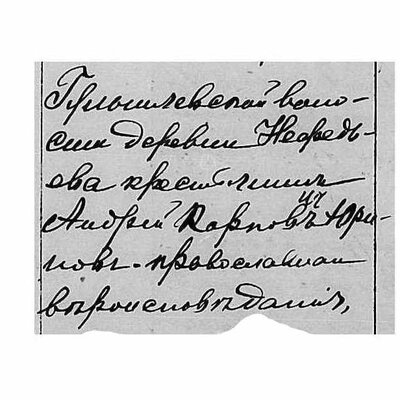 воло-
сти деревни Нефедь-
ева крестьянинъ
Андрей Карповъ Юри-
новъ - православнаго
вѣроисповѣданія,